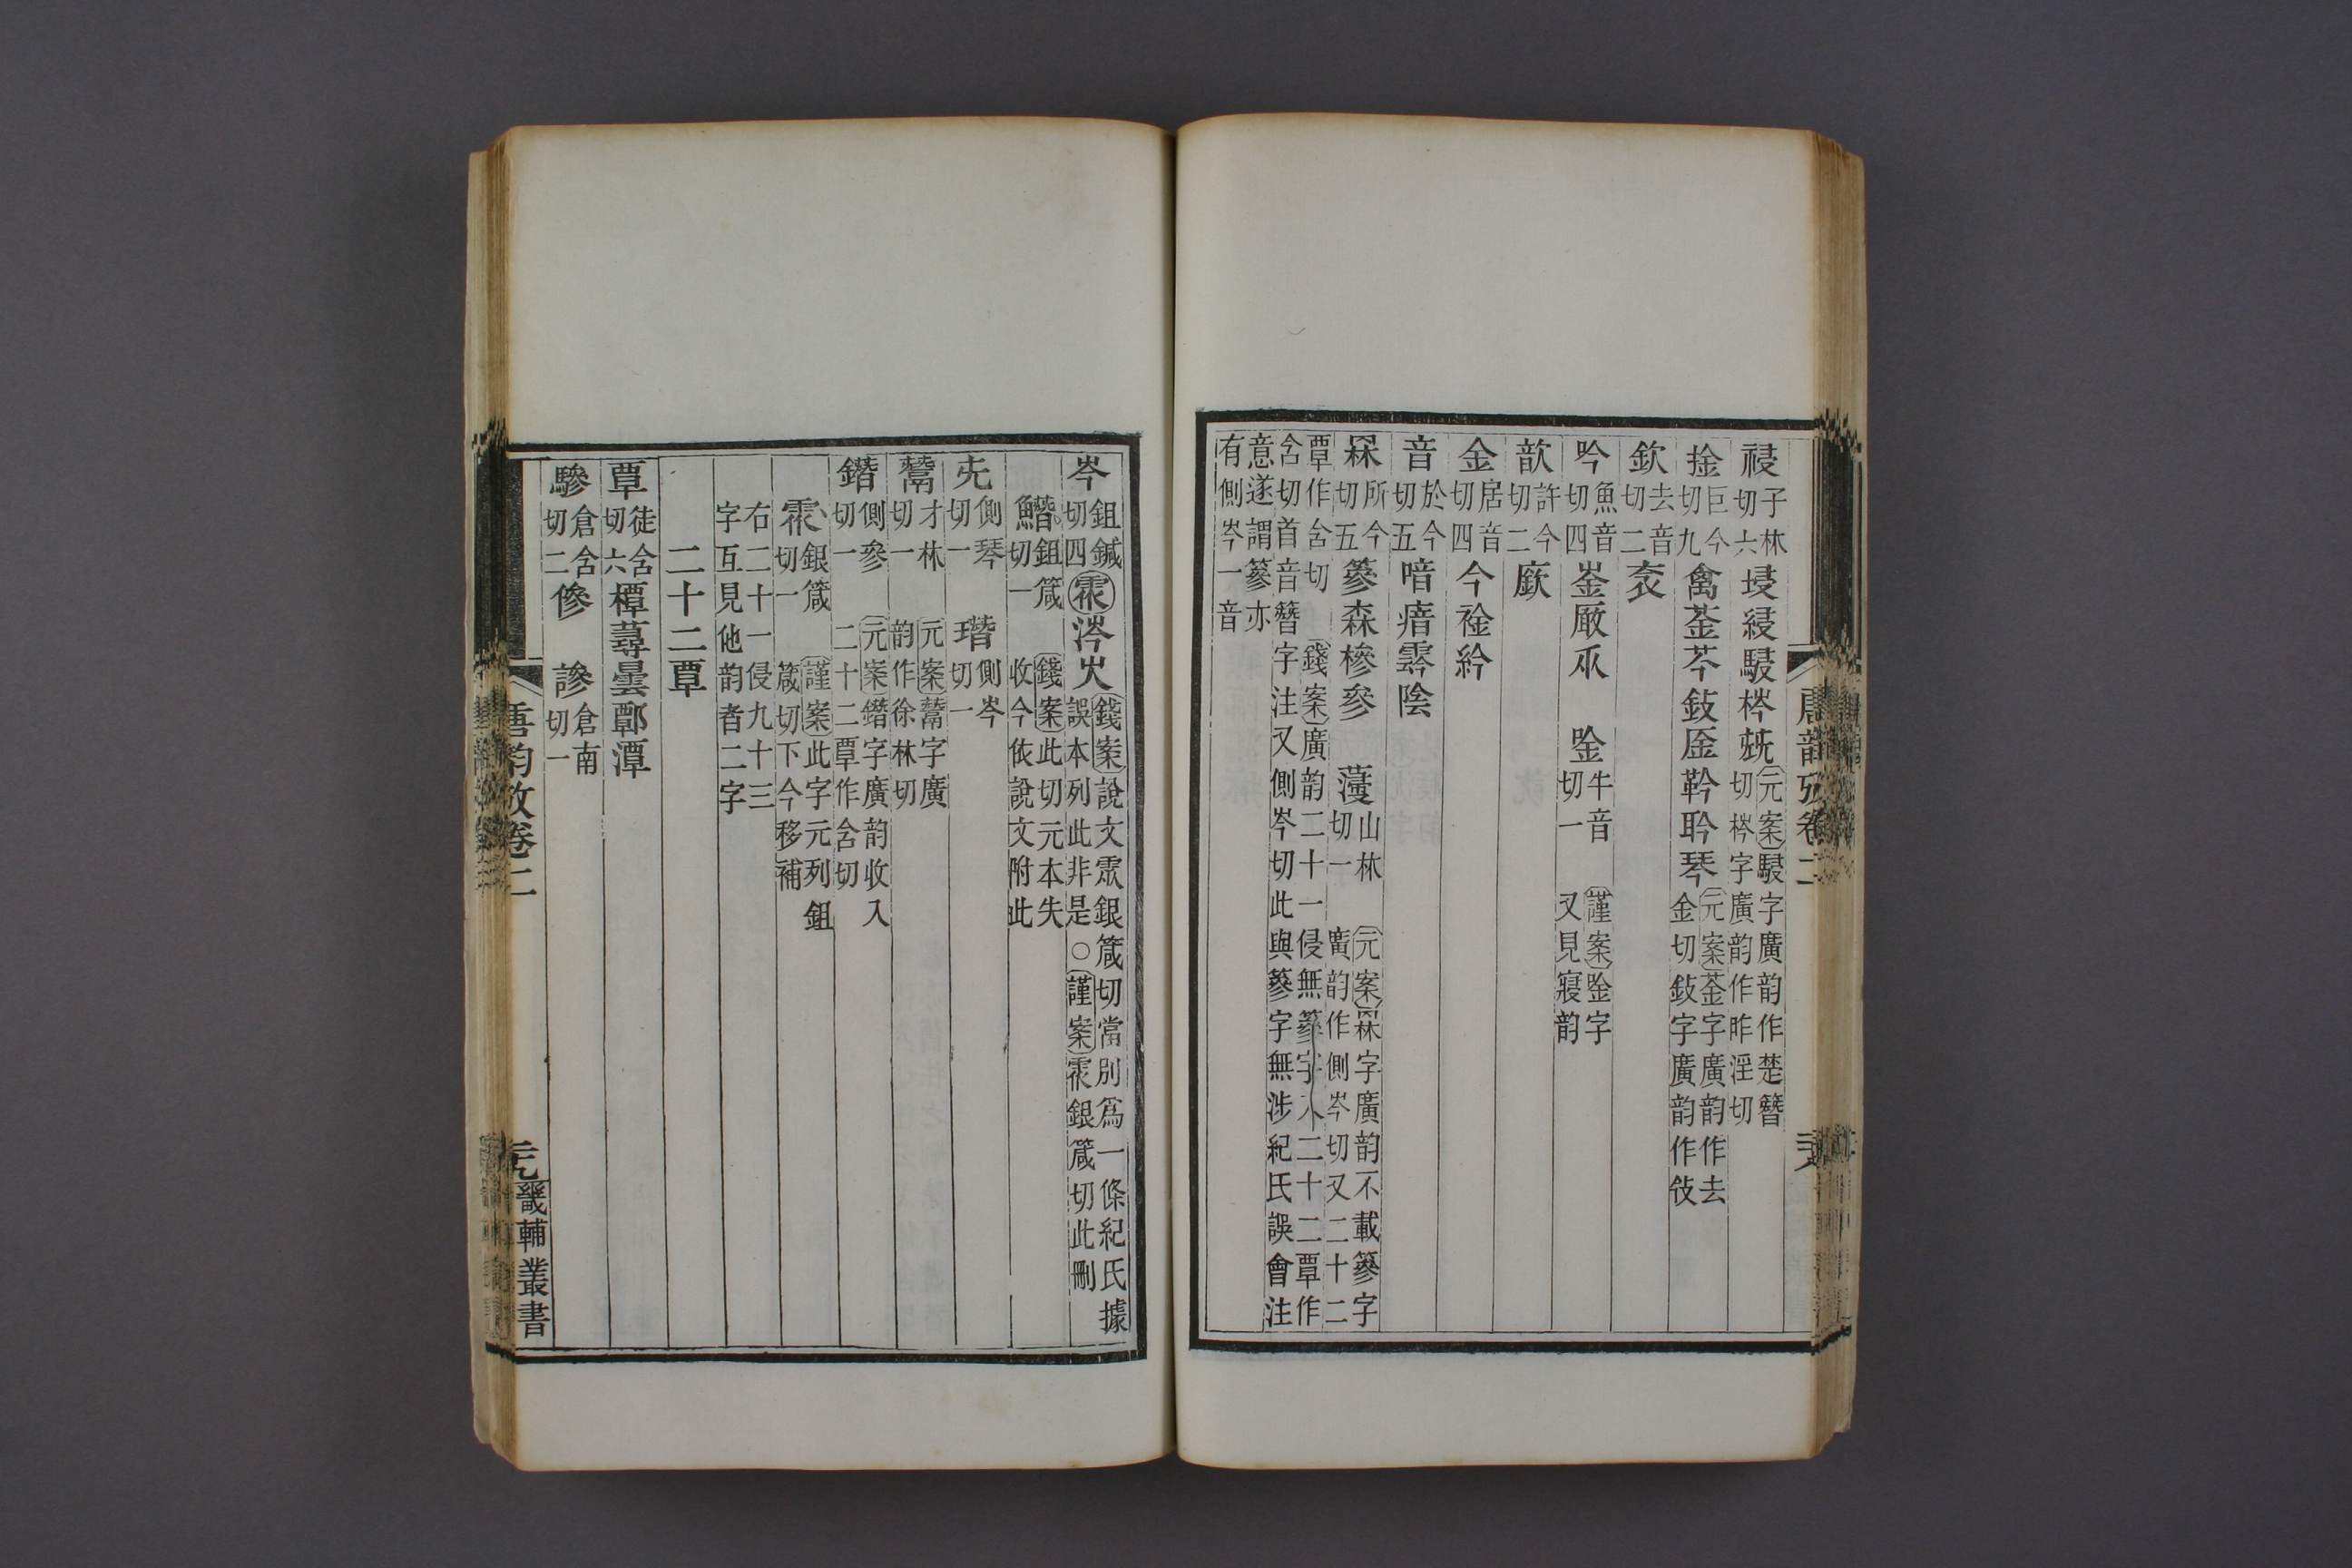 祲子林切六埐綅駸梣兓元案駸字廣韵作楚簪切梣字廣韵作昨淫切
捦巨今切九禽荃芩鈙㕂靲耹琴元案荃字廣韵作去金切鈙字廣韵作㩒
欽去音切二衮
吟魚音切四崟厰乑 㱃牛音切一 謹案㱃字又見寑韵
歆許今切二廞
金居音切四今䘳紟
音於今切五喑瘖霒陰
罧所今切五篸森槮參 蔓山林切一 元案罧字廣韵不載篸字廣韵作側岑切又二十二
覃作含切 錢案廣韵二十一侵無篸字 二十二覃作
含切首音簪字注又側岑切此與篸字無涉紀氏誤會注
意遂謂篸亦
有側岑一音
唐韵攷卷二
岑鉏鍼切四霃涔㞥錢案說文霃銀箴切當別爲一條紀氏據誤本列此非是○謹案霃銀箴切此刪
鱏鉏箴切一 錢案此切元本失收今依說文附此
兂側琴切一 瑨側岑切一
鬵才林切一 元案鬵字廣韵作徐林切
鐕側參切一 元案鐕字廣韵收入二十二覃作含切
霃銀箴切一 謹案此字元列鉏箴切下今移補
右二十一侵九十三字互見他韵者二字
二十二覃
覃徒含切六橝蕁曇鄲潭
驂倉含切二傪 謲倉南切一
唐韵攷卷二
畿輔叢書